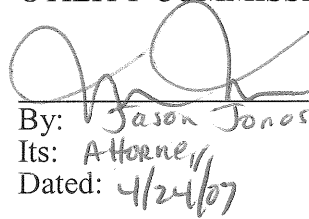 By: Jason Jones
Its: Attorney
Dated: 4/24/07